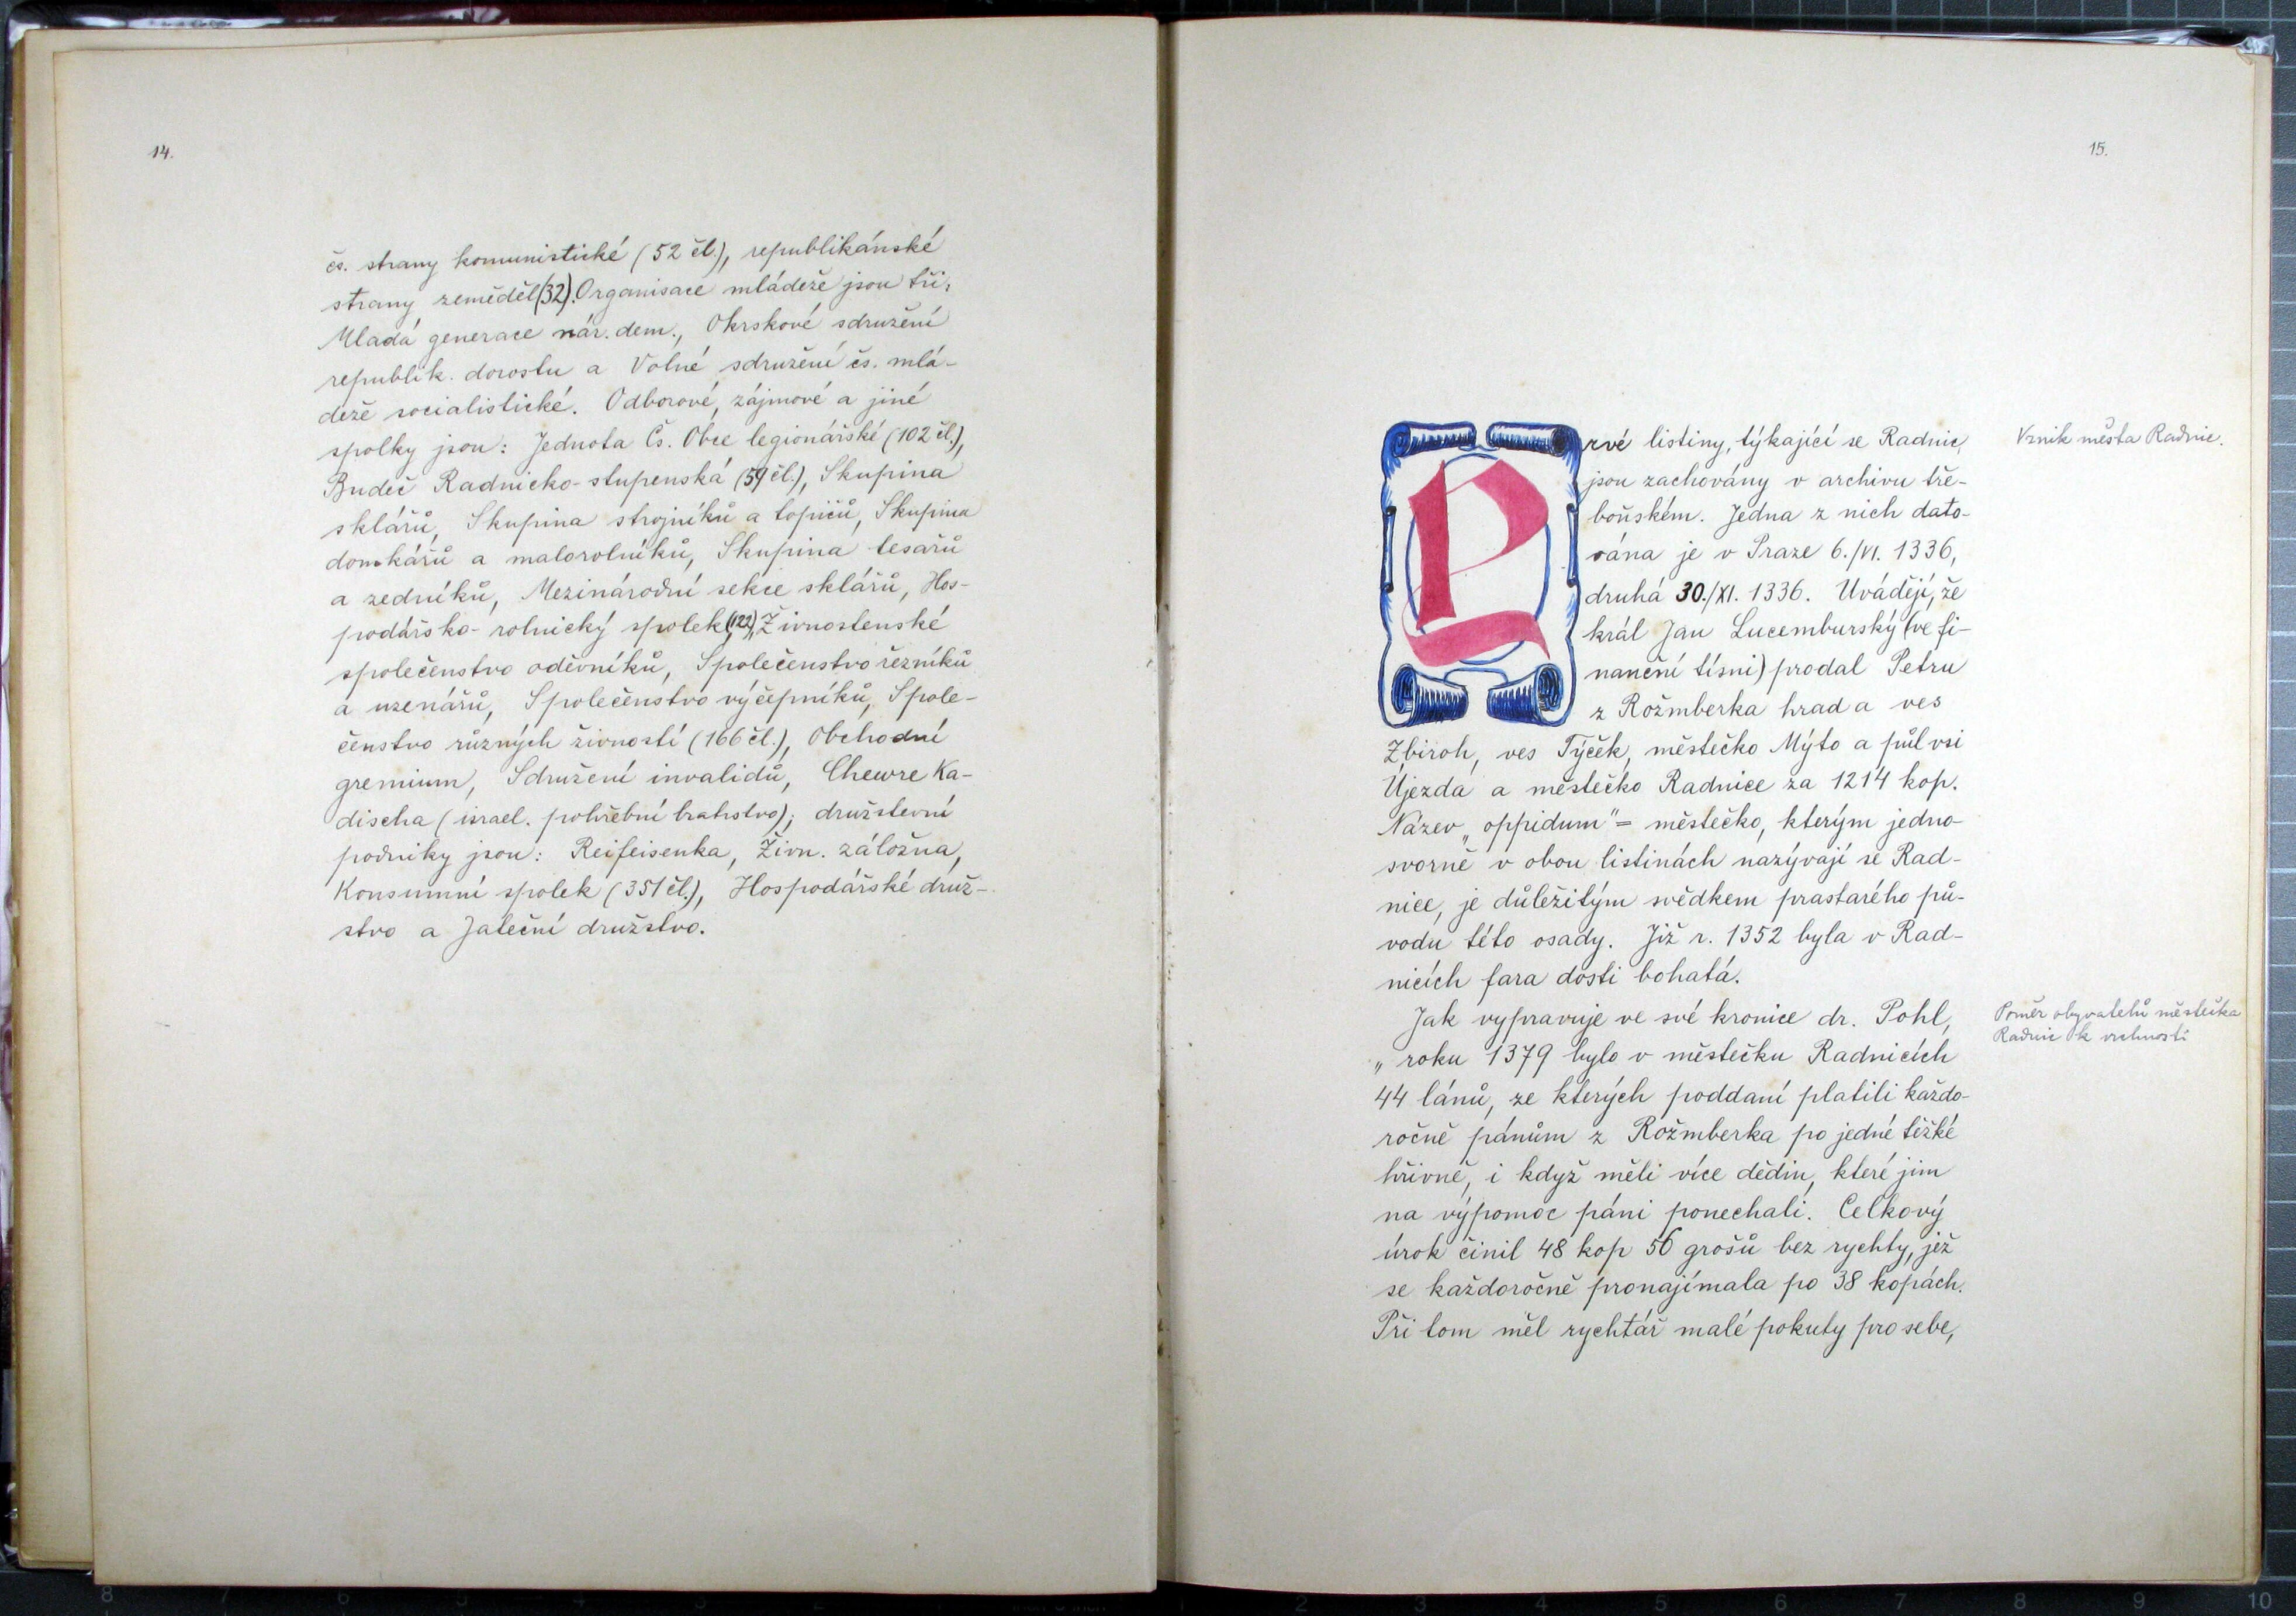 14.
čs. strany komunistické (52 čl.), republikánské
strany zeměděl(32). Organisace mládeže jsou tři:
Mladá generace nár. dem., Okrskové sdružení
republik. dorostu a Volné sdružení čs. mlá-
deže socialistické. Odborové, zájmové a jiné
spolky jsou: Jednota Čs. Obce legionářské (102 čl.),
Budeč Radnicko-stupenská (59 čl.), Skupina
sklářů, Skupina strojníků a topičů, Skupina
domkářů a malorolníků, Skupina tesařů
a zedníků, Mezinárodní sekce sklářů, Hos-
podářsko-rolnický spolek (122), Živnostenské
společenstvo oděvníků, Společenstvo řezníků
a uzenářů, Společenstvo výčepníků, Spole-
čenstvo různých živností (166 čl.), Obchodní
gremium, Sdružení invalidů, Chewre Ka-
discha (israel. pohřební bratrstvo); družstevní
podniky jsou: Reifeisenka, Živn. záložna,
Konsumní spolek (351 čl.), Hospodářské druž-
stvo a Jateční družstvo.
15.
Prvé listiny, týkající se Radnic,
jsou zachovány v archivu tře-
boňském. Jedna z nich dato-
vána je v Praze 6./VI. 1336,
druhá 30./XI. 1336. Uvádějí, že
král Jan Lucemburský (ve fi-
nanční tísni) prodal Petru
z Rožmberka hrad a ves
Zbiroh, ves Týček, městečko Mýto a půl vsi
Újezda a městečko Radnice za 1214 kop.
Název „oppidum" = městečko, kterým jedno-
svorně v obou listinách nazývají se Rad-
nice, je důležitým svědkem prastarého pů-
vodu této osady. Již r. 1352 byla v Rad-
nicích fara dosti bohatá.
Jak vypravuje ve své kronice dr. Pohl,
„roku 1379 bylo v městečku Radnicích
44 lánů, ze kterých poddaní platili každo-
ročně pánům z Rožmberka po jedné těžké
hřivně, i když měli více dědin, které jim
na výpomoc páni ponechali. Celkový
úrok činil 48 kop 56 grošů bez rychty, jež
se každoročně pronajímala po 38 kopách.
Při tom měl rychtář malé pokuty pro sebe,
Vznik města Radnic.
Poměr obyvatelů městečka
Radnic k vrchnosti
8 7 6 5 4 3 2 1 2 3 4 5 6 7 8 9 10